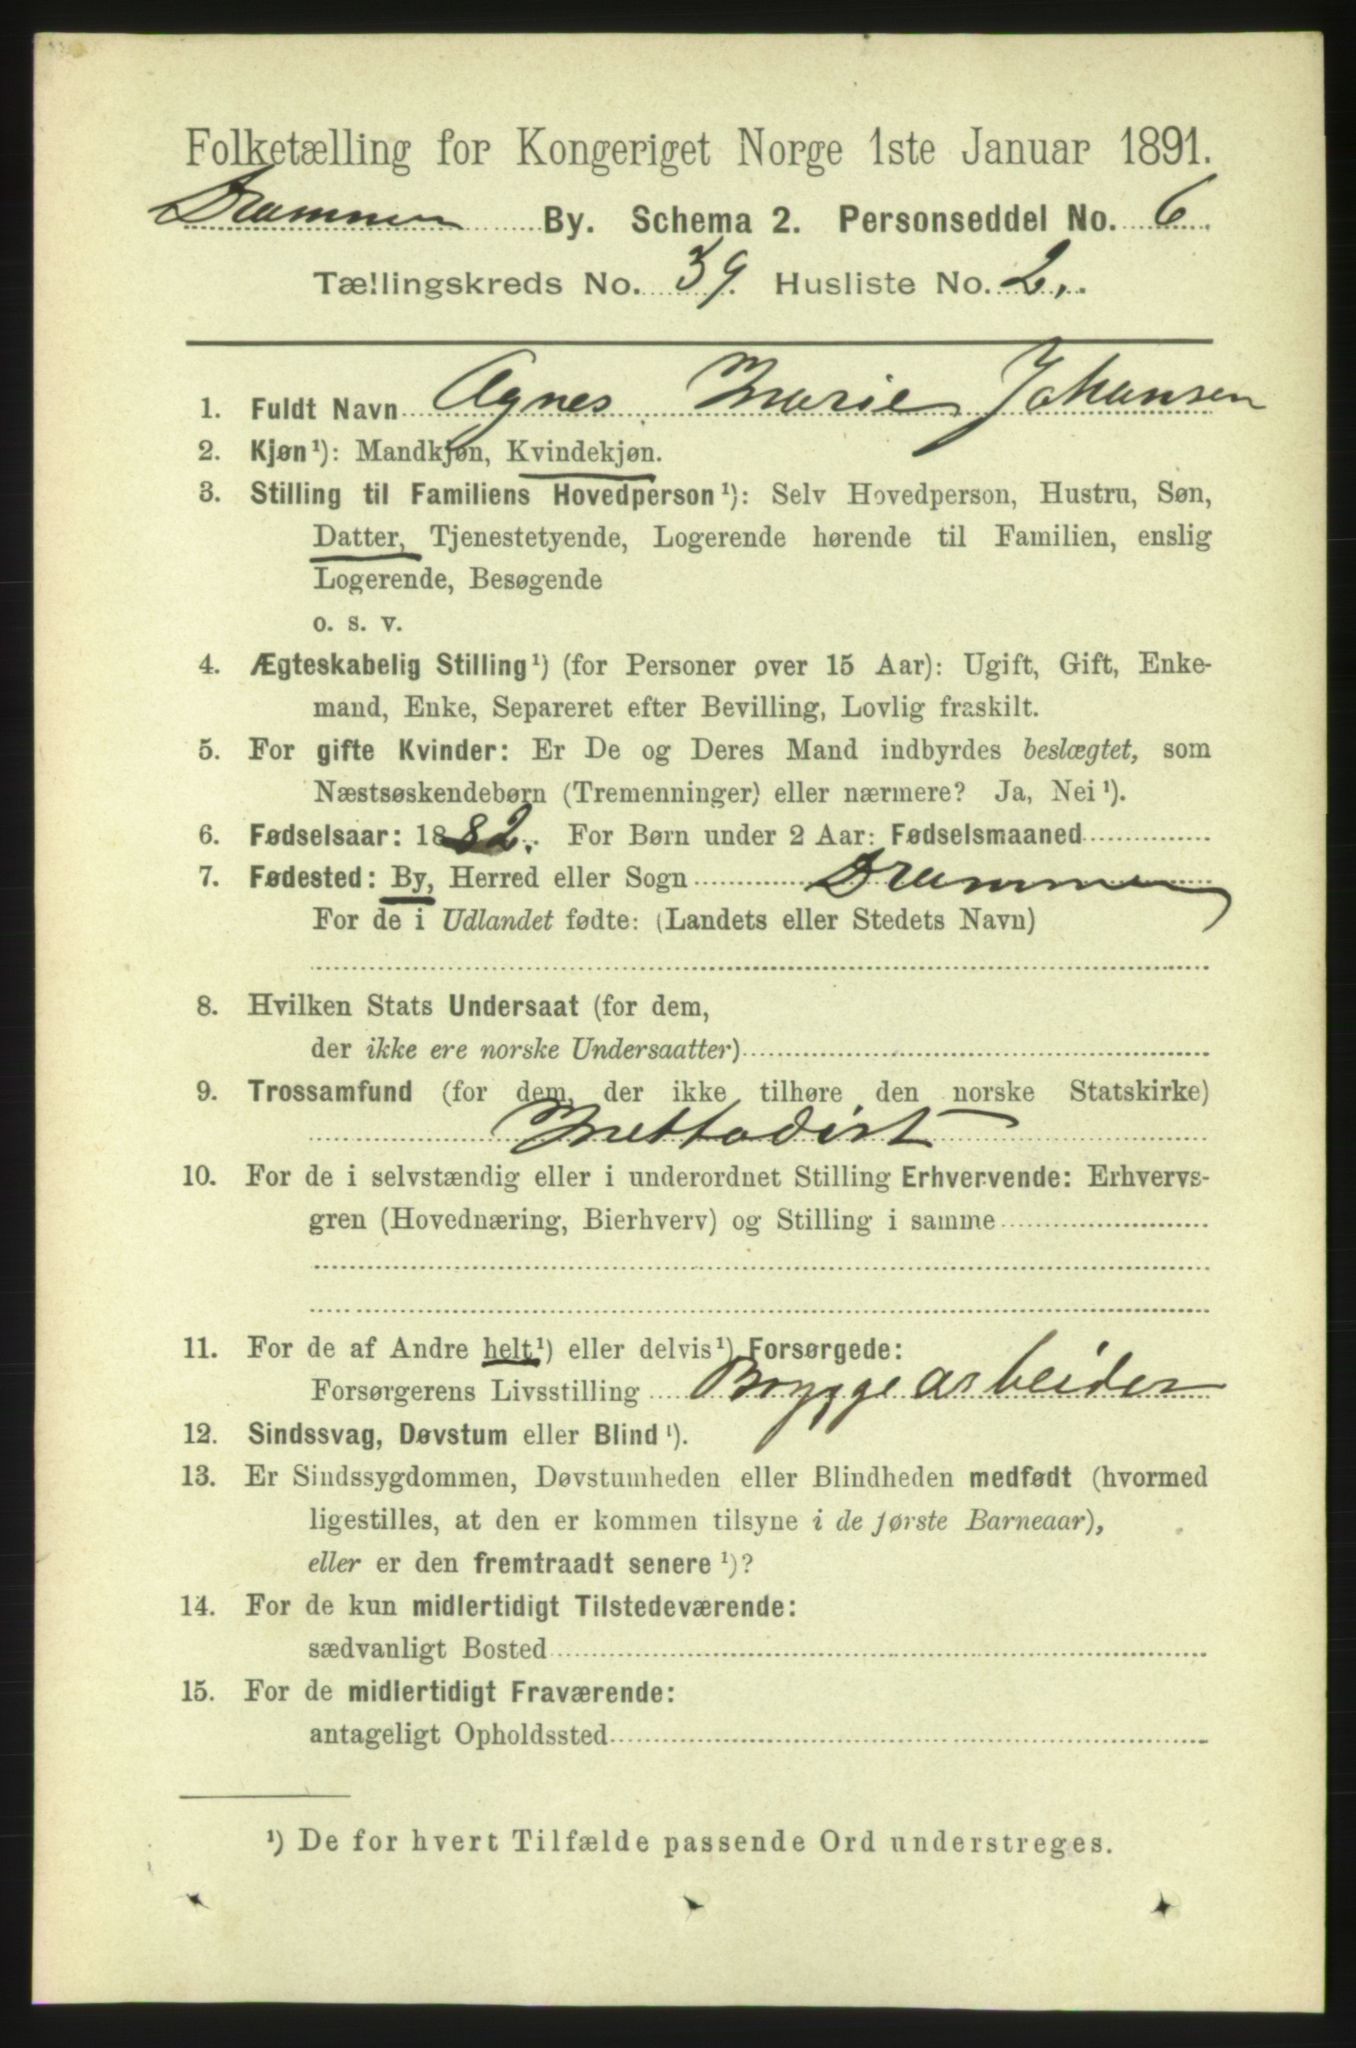 Folketælling for Kongeriget Norge 1ste Januar 1891.
Drammen By. Schema 2. Personseddel No. 6.
Tællingskreds No. 39. Husliste No. 2.
1. Fuldt Navn Agnes Marie Johansen
2. Kjøn¹): Mandkjøn, Kvindekjøn.
3. Stilling til Familiens Hovedperson¹): Selv Hovedperson, Hustru, Søn,
Datter, Tjenestetyende, Logerende hørende til Familien, enslig
Logerende, Besøgende
o. s. v.
4. Ægteskabelig Stilling¹) (for Personer over 15 Aar): Ugift, Gift, Enke-
mand, Enke, Separeret efter Bevilling, Lovlig fraskilt.
5. For gifte Kvinder: Er De og Deres Mand indbyrdes beslægtet, som
Næstsøskendebørn (Tremenninger) eller nærmere? Ja, Nei¹).
6. Fødselsaar: 1882. For Børn under 2 Aar: Fødselsmaaned
7. Fødested: By, Herred eller Sogn Drammen
For de i Udlandet fødte: (Landets eller Stedets Navn)
8. Hvilken Stats Undersaat (for dem,
der ikke ere norske Undersaatter)
9. Trossamfund (for dem, der ikke tilhøre den norske Statskirke)
Mettodist
10. For de i selvstændig eller i underordnet Stilling Erhvervende: Erhvervs-
gren (Hovednæring, Bierhverv) og Stilling i samme
11. For de af Andre helt¹) eller delvis¹) Forsørgede:
Forsørgerens Livsstilling Bryggearbeider
12. Sindssvag, Døvstum eller Blind¹).
13. Er Sindssygdommen, Døvstumheden eller Blindheden medfødt (hvormed
ligestilles, at den er kommen tilsyne i de første Barneaar),
eller er den fremtraadt senere¹)?
14. For de kun midlertidigt Tilstedeværende:
sædvanligt Bosted
15. For de midlertidigt Fraværende:
antageligt Opholdssted
¹) De for hvert Tilfælde passende Ord understreges.